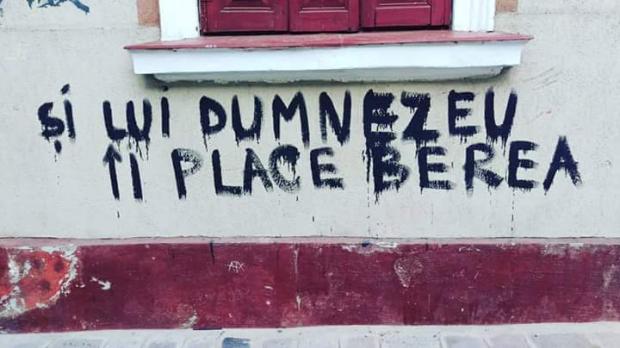 ȘI LUI DUMNEZEU
ÎI PLACE BEREA